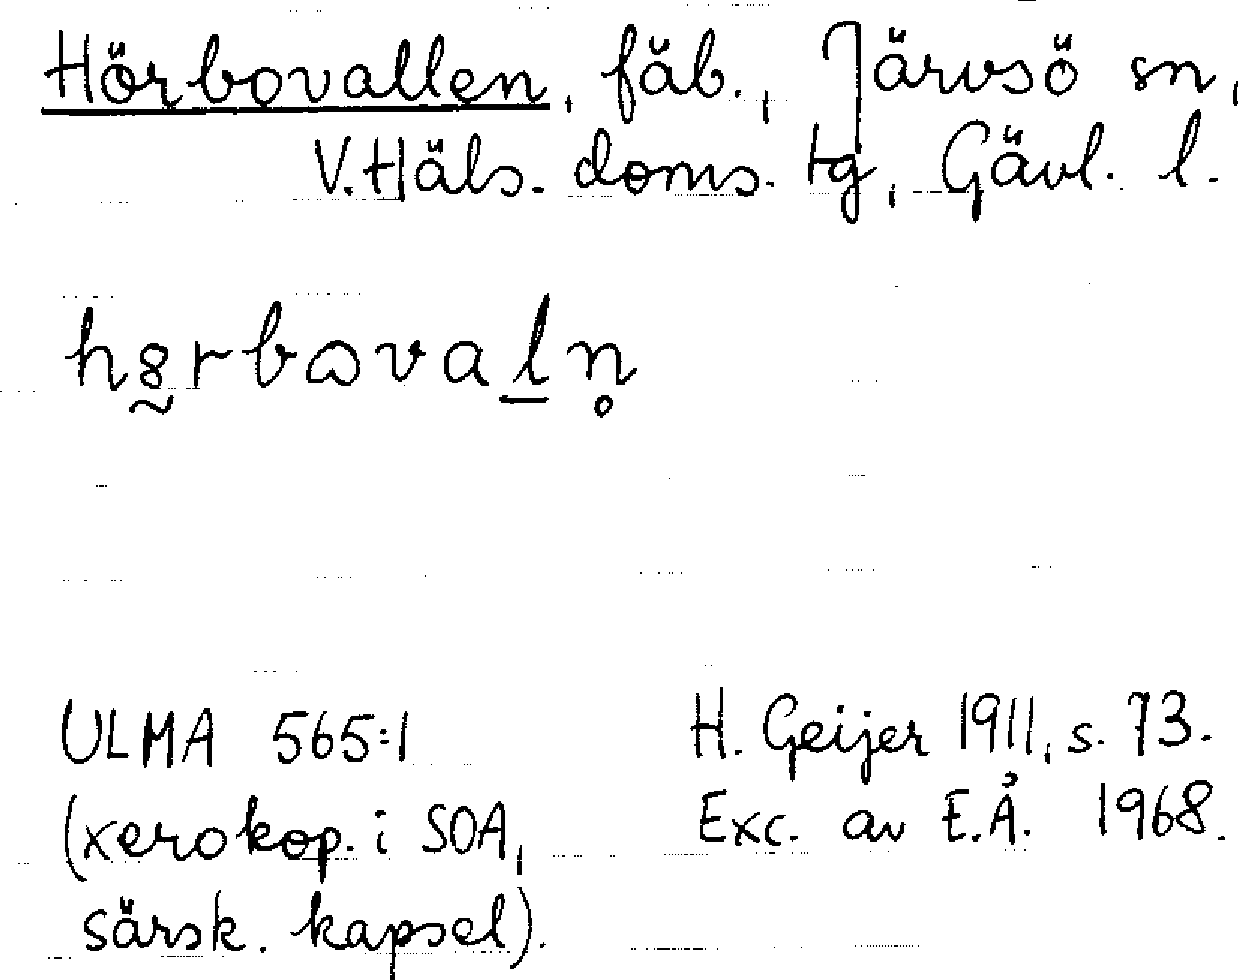 Hörbovallen, fäb., Järvsö sn,
V. Häls. doms. tg, Gävl. l.
h8̰rbωval̲n̥
ULMA 565:1
(xerokop. i SOA,
särsk. kapsel).
H. Geijer 1911, s. 73.
Exc. av E.Å. 1968.